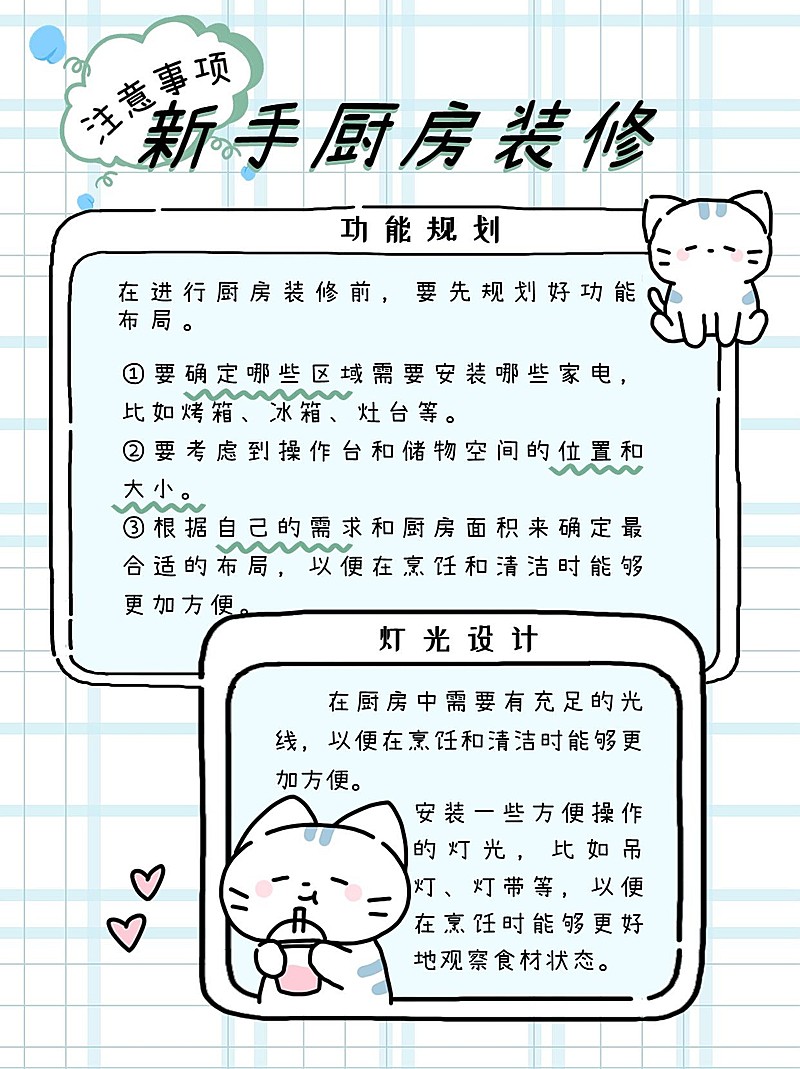 注意事项
新手厨房装修
功能规划
在进行厨房装修前，要先规划好功能
布局。
①要确定哪些区域需要安装哪些家电，
比如烤箱、冰箱、灶台等。
②要考虑到操作台和储物空间的位置和
大小。
③根据自己的需求和厨房面积来确定最
合适的布局，以便在烹饪和清洁时能够
更加方便。
灯光设计
在厨房中需要有充足的光
线，以便在烹饪和清洁时能够更
加方便。
安装一些方便操作
的灯光，比如吊
灯、灯带等，以便
在烹饪时能够更好
地观察食材状态。